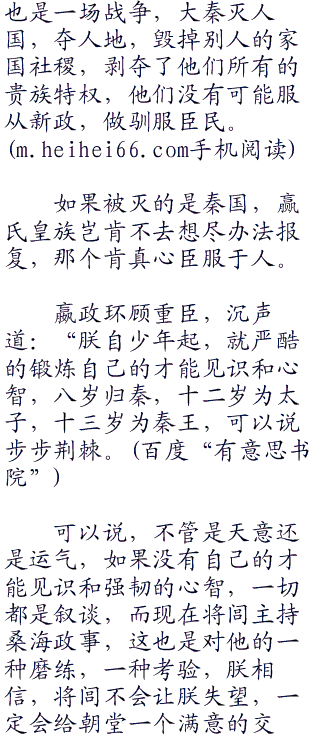 也是一场战争，大秦灭人
国，夺人地，毁掉别人的家
国社稷，剥夺了他们所有的
贵族特权，他们没有可能服
从新政，做驯服臣民。
(m.heihei66.com手机阅读)
如果被灭的是秦国，赢
氏皇族岂肯不去想尽办法报
复，那个肯真心臣服于人。
嬴政环顾重臣，沉声
道：“朕自少年起，就严酷
的锻炼自己的才能见识和心
智，八岁归秦，十二岁为太
子，十三岁为秦王，可以说
步步荆棘。(百度“有意思书
院”)
可以说，不管是天意还
是运气，如果没有自己的才
能见识和强韧的心智，一切
都是叙谈，而现在将闾主持
桑海政事，这也是对他的一
种磨练，一种考验，朕相
信，将闾不会让朕失望，一
定会给朝堂一个满意的交